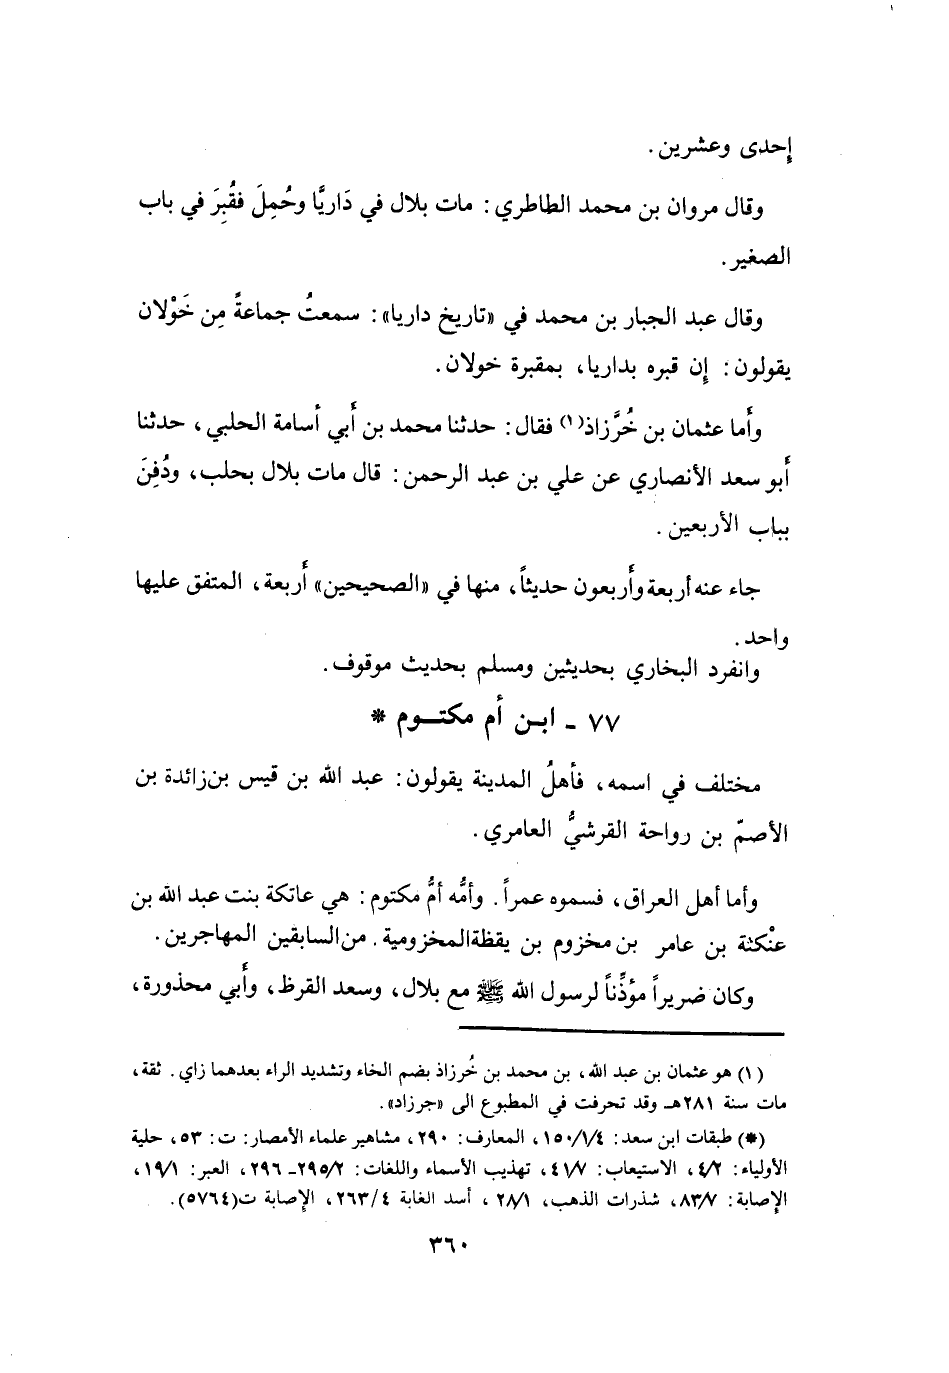 إحدى وعشرين .
وقال مروان بن محمد الطاطري : مات بلال في دَاريَّا وحُمِلَ فقُبِرَ في باب
الصغير .
وقال عبد الجبار بن محمد في «تاريخ داريا» : سمعتُ جماعةً مِن خَوْلان
يقولون : إن قبره بداريا، بمقبرة خولان .
وأما عثمان بن خُرَّزاذ(١) فقال : حدثنا محمد بن أبي أسامة الحلبي ، حدثنا
أبو سعد الأنصاري عن علي بن عبد الرحمن : قال مات بلال بحلب، ودُفِنَ
بباب الأربعين .
جاء عنه أربعة وأربعون حديثاً، منها في «الصحيحين» أربعة، المتفق عليها
واحد .
وانفرد البخاري بحديثين ومسلم بحديث موقوف .
٧٧ - ابن أم مكتوم *
مختلف في اسمه، فأهلُ المدينة يقولون : عبد الله بن قيس بن زائدة بن
الأصمّ بن رواحة القرشيُّ العامري .
وأما أهل العراق، فسموه عمراً . وأمُّه أمُّ مكتوم : هي عاتكة بنت عبد الله بن
عنْكثة بن عامر بن مخزوم بن يقظة المخزومية . من السابقين المهاجرين .
وكان ضريراً مؤذِّناً لرسول الله ﷺ مع بلال، وسعد القرظ، وأبي محذورة،
(١) هو عثمان بن عبد الله، بن محمد بن خُرزاذ بضم الخاء وتشديد الراء بعدهما زاي . ثقة،
مات سنة ٢٨١هـ وقد تحرفت في المطبوع الى «جرزاد» .
(*) طبقات ابن سعد : ١٥٠/١/٤، المعارف : ٢٩٠، مشاهير علماء الأمصار : ت : ٥٣، حلية
الأولياء : ٤/٢، الاستيعاب : ٤١/٧، تهذيب الأسماء واللغات : ٢٩٥/٢- ٢٩٦، العبر : ١٩/١،
الإصابة : ٨٣/٧، شذرات الذهب، ٢٨/١ ، أسد الغابة ٢٦٣/٤، الإصابة ت(٥٧٦٤) .
٣٦٠